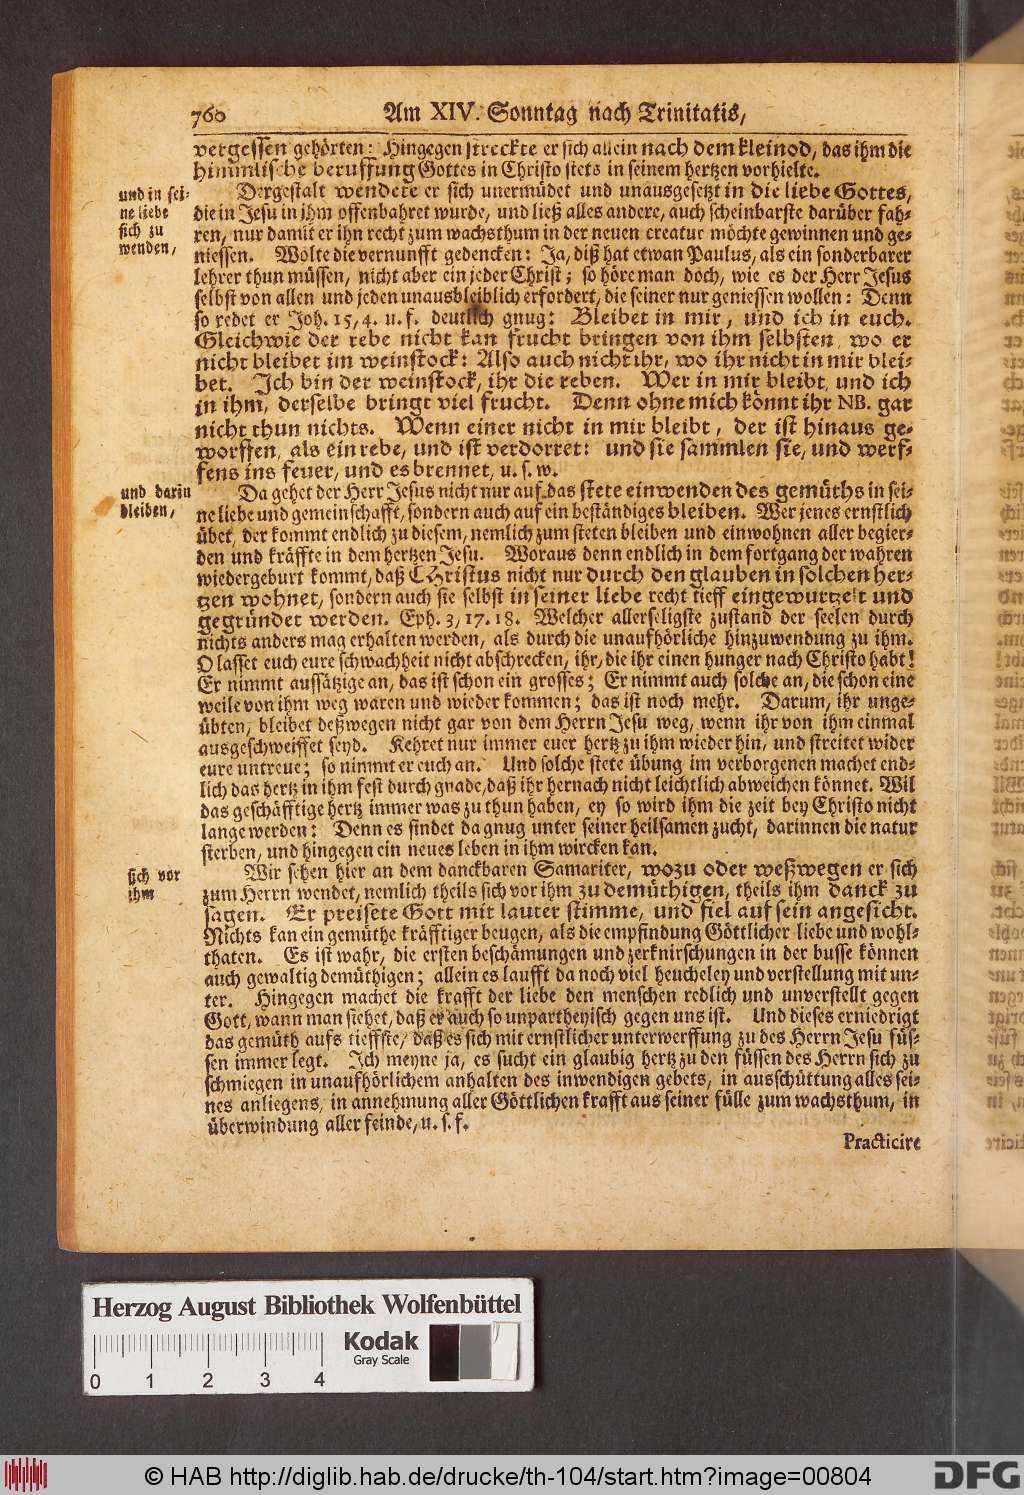 760 Am XIV. Sonntag nach Trinitatis,
vergessen gehörten: Hingegen streckte er sich allein nach dem kleinod, das ihm die
himmlische beruffung Gottes in Christo stets in seinem hertzen vorhielte.
und in sei-
ne liebe
sich zu
wenden,
Dergestalt wendete er sich unermüdet und unausgesetzt in die liebe Gottes,
die in Jesu in ihm offenbahret wurde, und ließ alles andere, auch scheinbarste darüber fah-
ren, nur damit er ihn recht zum wachsthum in der neuen creatur möchte gewinnen und ge-
niessen. Wolte die vernunfft gedencken: Ja, diß hat etwan Paulus, als ein sonderbarer
lehrer thun müssen, nicht aber ein jeder Christ; so höre man doch, wie es der Herr Jesus
selbst von allen und jeden unausbleiblich erfordert, die seiner nur geniessen wollen: Denn
so redet er Joh. 15, 4. u. f. deutlich gnug: Bleibet in mir, und ich in euch.
Gleichwie der rebe nicht kan frucht bringen von ihm selbsten, wo er
nicht bleibet im weinstock: Also auch nicht ihr, wo ihr nicht in mir blei-
bet. Ich bin der weinstock, ihr die reben. Wer in mir bleibt, und ich
in ihm, derselbe bringt viel frucht. Denn ohne mich könnt ihr NB. gar
nicht thun nichts. Wenn einer nicht in mir bleibt, der ist hinaus ge-
worffen, als ein rebe, und ist verdorret: und sie sammlen sie, und werf-
fens ins feuer, und es brennet, u. s. w.
und darin
bleiben,
Da gehet der Herr Jesus nicht nur auf das stete einwenden des gemüths in sei-
ne liebe und gemeinschafft, sondern auch auf ein beständiges bleiben. Wer jenes ernstlich
übet, der kommt endlich zu diesem, nemlich zum steten bleiben und einwohnen aller begier-
den und kräffte in dem hertzen Jesu. Woraus denn endlich in dem fortgang der wahren
wiedergeburt kommt, daß CHristus nicht nur durch den glauben in solchen her-
tzen wohnet, sondern auch sie selbst in seiner liebe recht tieff eingewurtzelt und
gegründet werden. Eph. 3, 17. 18. Welcher allerseligste zustand der seelen durch
nichts anders mag erhalten werden, als durch die unaufhörliche hinzuwendung zu ihm.
O lasset euch eure schwachheit nicht abschrecken, ihr, die ihr einen hunger nach Christo habt!
Er nimmt aussätzige an, das ist schon ein grosses; Er nimmt auch solche an, die schon eine
weile von ihm weg waren und wieder kommen; das ist noch mehr. Darum, ihr unge-
übten, bleibet deßwegen nicht gar von dem Herrn Jesu weg, wenn ihr von ihm einmal
ausgeschweiffet seyd. Kehret nur immer euer hertz zu ihm wieder hin, und streitet wider
eure untreue; so nimmt er euch an. Und solche stete übung im verborgenen machet end-
lich das hertz in ihm fest durch gnade, daß ihr hernach nicht leichtlich abweichen könnet. Wil
das geschäfftige hertz immer was zu thun haben, ey so wird ihm die zeit bey Christo nicht
lange werden: Denn es findet da gnug unter seiner heilsamen zucht, darinnen die natur
sterben, und hingegen ein neues leben in ihm wircken kan.
sich vor
ihm
Wir sehen hier an dem danckbaren Samariter, wozu oder weßwegen er sich
zum Herrn wendet, nemlich theils sich vor ihm zu demüthigen, theils ihm danck zu
sagen. Er preisete Gott mit lauter stimme, und fiel auf sein angesicht.
Nichts kan ein gemüthe kräfftiger beugen, als die empfindung Göttlicher liebe und wohl-
thaten. Es ist wahr, die ersten beschämungen und zerknirschungen in der busse können
auch gewaltig demüthigen; allein es laufft da noch viel heucheley und verstellung mit un-
ter. Hingegen machet die krafft der liebe den menschen redlich und unverstellt gegen
Gott, wann man siehet, daß er auch so unpartheyisch gegen uns ist. Und dieses erniedrigt
das gemüth aufs tieffste, daß es sich mit ernstlicher unterwerffung zu des Herrn Jesu füs-
sen immer legt. Ich meyne ja, es sucht ein glaubig hertz zu den füssen des Herrn sich zu
schmiegen in unaufhörlichem anhalten des inwendigen gebets, in ausschüttung alles sei-
nes anliegens, in annehmung aller Göttlichen krafft aus seiner fülle zum wachsthum, in
überwindung aller feinde, u. s. f.
Practicire
Herzog August Bibliothek Wolfenbüttel
Kodak
Gray Scale
0 1 2 3 4
© HAB http://diglib.hab.de/drucke/th-104/start.htm?image=00804
DFG